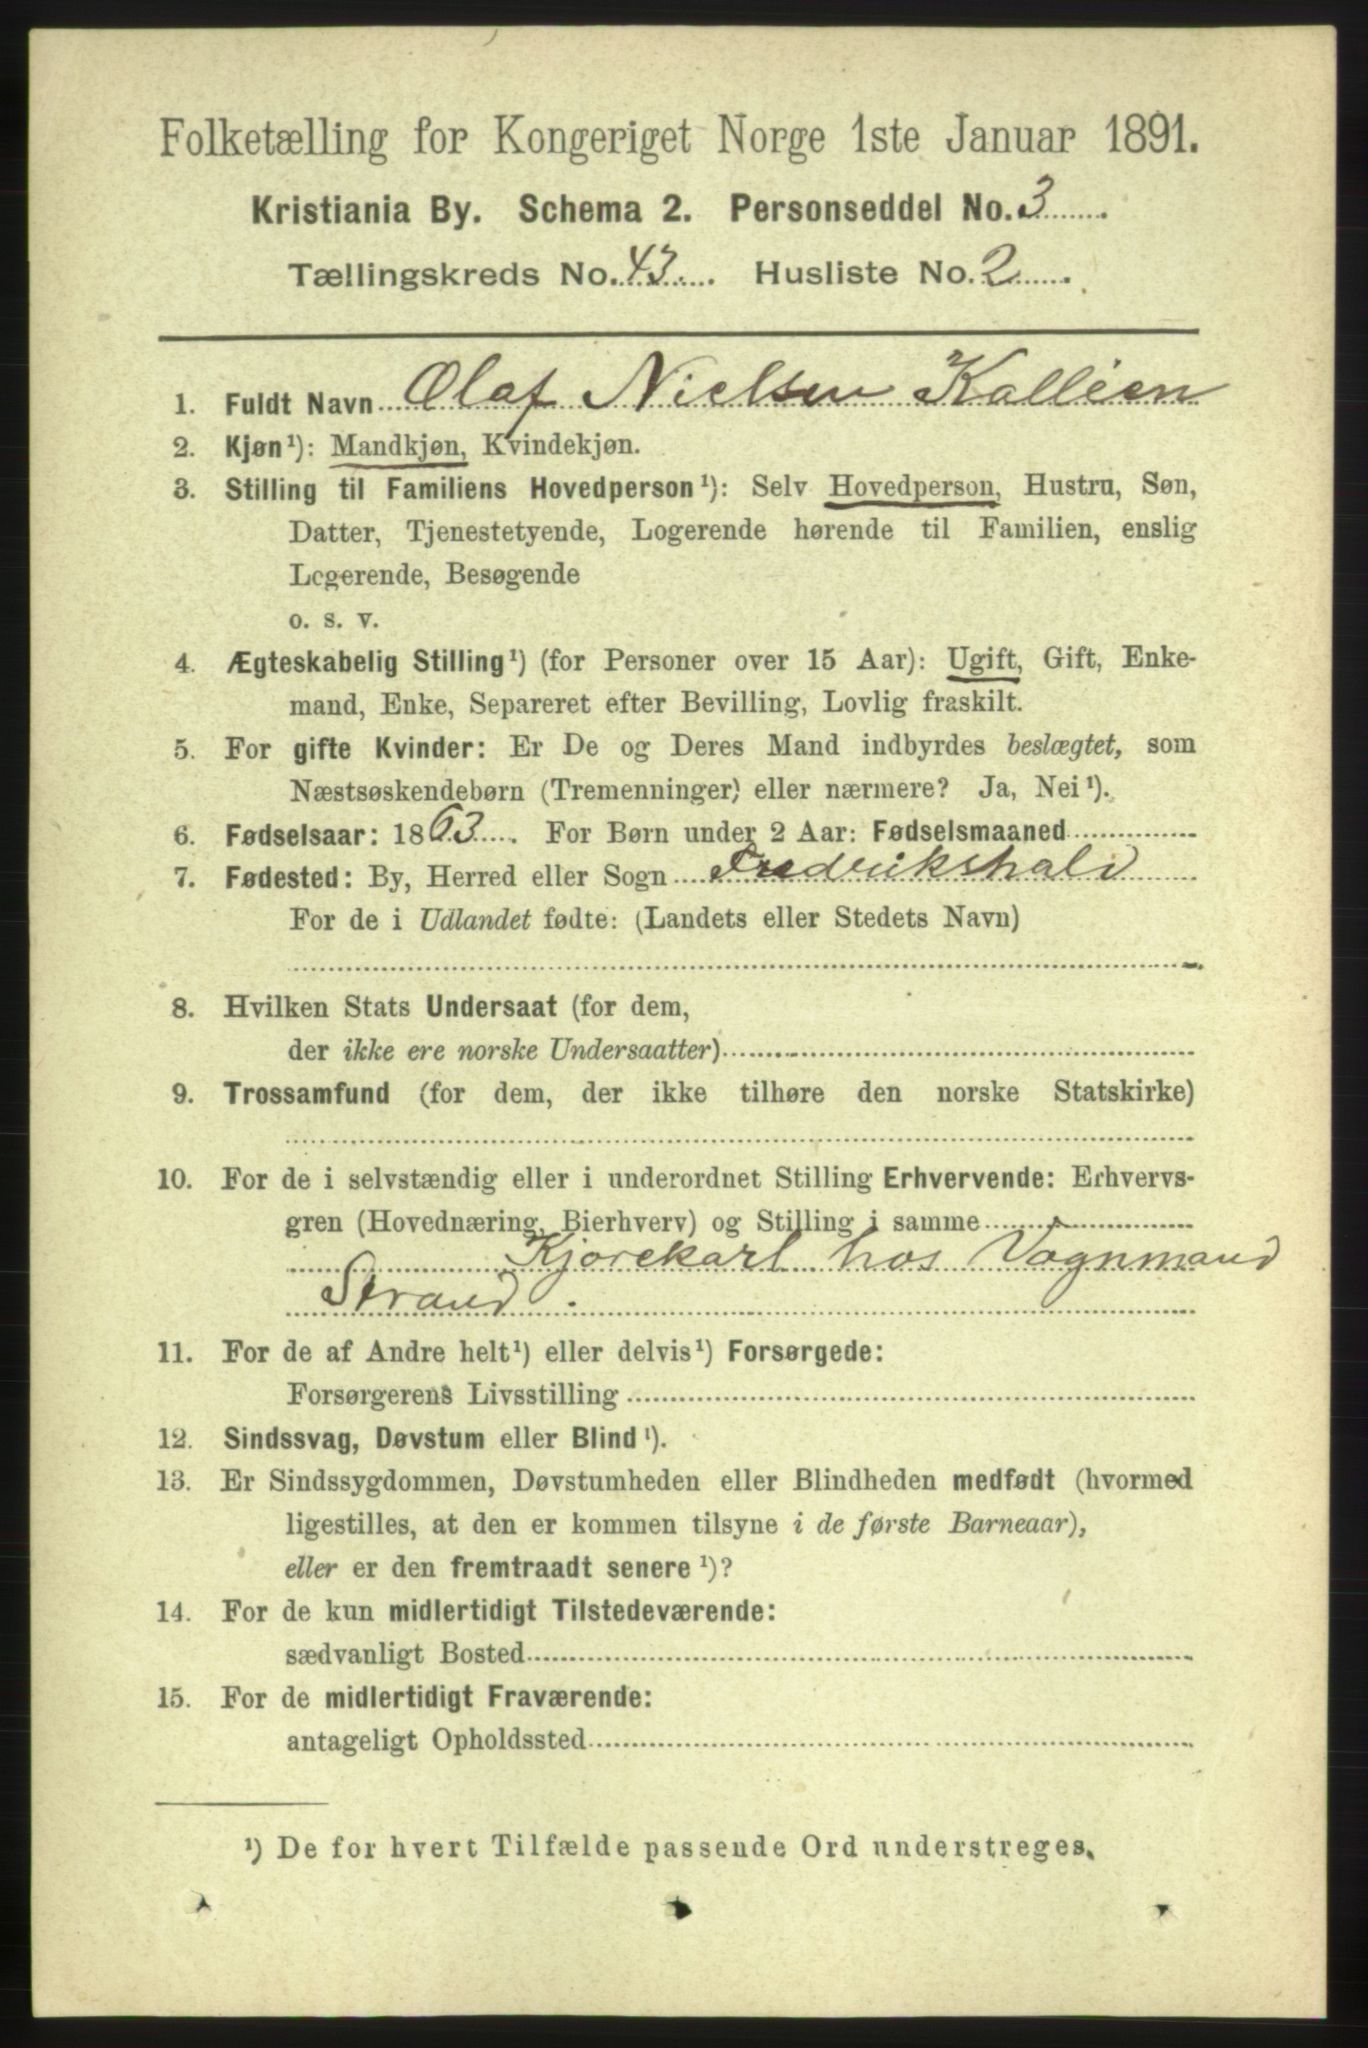 Folketælling for Kongeriget Norge 1ste Januar 1891.
Kristiania By. Schema 2. Personseddel No. 3
Tællingskreds No. 43. Husliste No. 2
1. Fuldt Navn Olaf Nielsen Kalléen
2. Kjøn¹): Mandkjøn, Kvindekjøn.
3. Stilling til Familiens Hovedperson¹): Selv Hovedperson, Hustru, Søn,
Datter, Tjenestetyende, Logerende hørende til Familien, enslig
Logerende, Besøgende
o. s. v.
4. Ægteskabelig Stilling¹) (for Personer over 15 Aar): Ugift, Gift, Enke-
mand, Enke, Separeret efter Bevilling, Lovlig fraskilt.
5. For gifte Kvinder: Er De og Deres Mand indbyrdes beslægtet, som
Næstsøskendebørn (Tremenninger) eller nærmere? Ja, Nei¹).
6. Fødselsaar: 1863. For Børn under 2 Aar: Fødselsmaaned
7. Fødested: By, Herred eller Sogn Fredrikshald
For de i Udlandet fødte: (Landets eller Stedets Navn)
8. Hvilken Stats Undersaat (for dem,
der ikke ere norske Undersaatter)
9. Trossamfund (for dem, der ikke tilhøre den norske Statskirke)
10. For de i selvstændig eller i underordnet Stilling Erhvervende: Erhvervs-
gren (Hovednæring, Bierhverv) og Stilling i samme
Kjørekarl hos Vognmand
Strand.
11. For de af Andre helt¹) eller delvis¹) Forsørgede:
Forsørgerens Livsstilling
12. Sindssvag, Døvstum eller Blind¹).
13. Er Sindssygdommen, Døvstumheden eller Blindheden medfødt (hvormed
ligestilles, at den er kommen tilsyne i de første Barneaar),
eller er den fremtraadt senere¹)?
14. For de kun midlertidigt Tilstedeværende:
sædvanligt Bosted
15. For de midlertidigt Fraværende:
antageligt Opholdssted
¹) De for hvert Tilfælde passende Ord understreges.